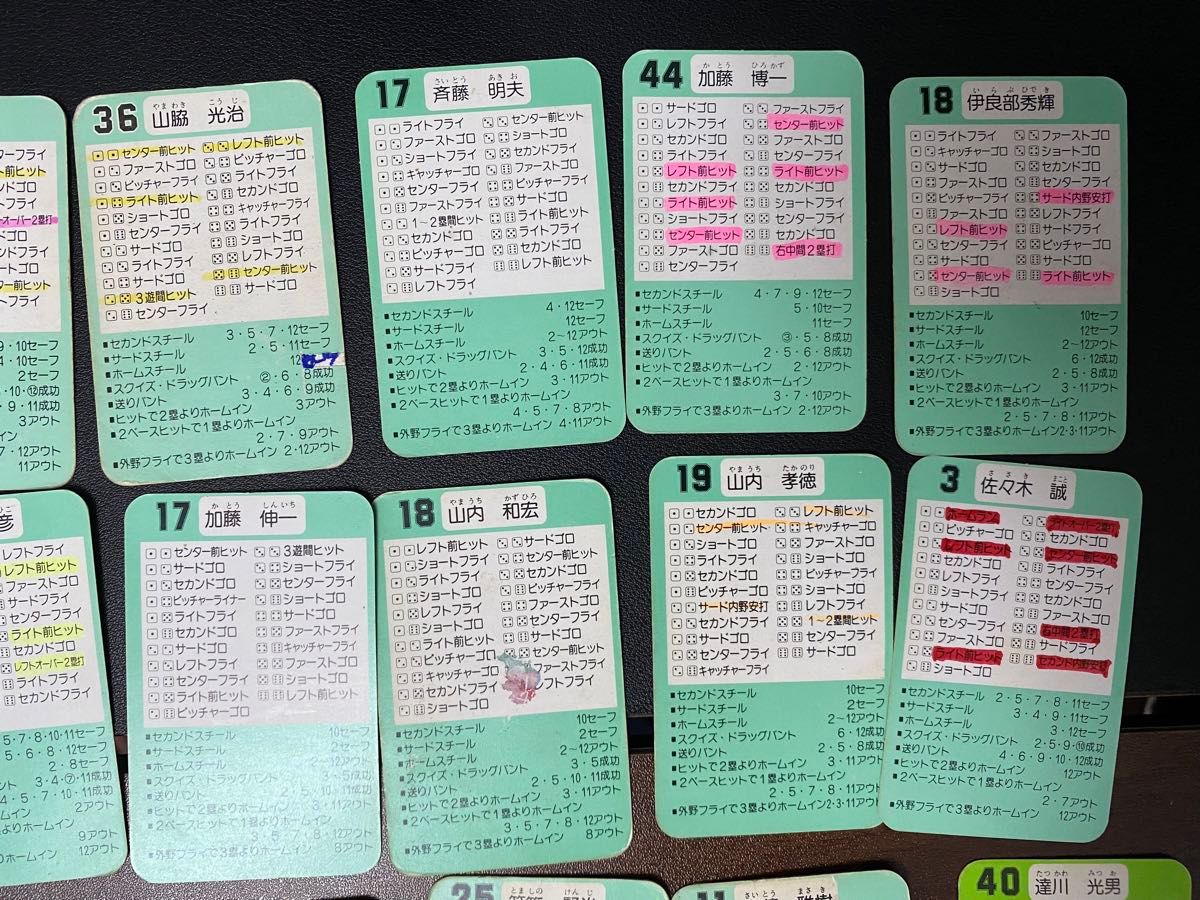 36 山脇 光治
やまわき こうじ
センター前ヒット レフト前ヒット
ファーストゴロ ピッチャーゴロ
ピッチャーフライ ライトフライ
ライト前ヒット セカンドゴロ
ショートゴロ キャッチャーフライ
センターフライ ライトフライ
サードゴロ ショートゴロ
ライトフライ レフトフライ
サードゴロ センター前ヒット
3遊間ヒット サードゴロ
センターフライ
セカンドスチール 3・5・7・12セーフ
サードスチール 2・5・11セーフ
ホームスチール
スクイズ・ドラッグバント ②・6・8成功
送りバント 3・4・6・9成功
ヒットで2塁よりホームイン 3アウト
2ベースヒットで1塁よりホームイン
2・7・9アウト
外野フライで3塁よりホームイン 2・12アウト
17 斉藤 明夫
さいとう あきお
ライトフライ センター前ヒット
ファーストゴロ ショートゴロ
ショートフライ セカンドフライ
キャッチャーゴロ ファーストフライ
センターフライ ピッチャーフライ
ファーストフライ サードゴロ
1〜2塁間ヒット ライト前ヒット
セカンドゴロ ライトフライ
サードフライ セカンドゴロ
レフトフライ レフト前ヒット
セカンドスチール 4・12セーフ
サードスチール 12セーフ
ホームスチール 2〜12アウト
スクイズ・ドラッグバント 3・5・12成功
送りバント 2・4・6・11成功
ヒットで2塁よりホームイン 3・11アウト
2ベースヒットで1塁よりホームイン
4・5・7・8アウト
外野フライで3塁よりホームイン 4・11アウト
44 加藤 博一
かとう ひろかず
サードゴロ ファーストフライ
レフトフライ センター前ヒット
セカンドゴロ ファーストゴロ
ライトフライ センターフライ
レフト前ヒット ライト前ヒット
セカンドフライ セカンドゴロ
ライト前ヒット サードゴロ
ショートフライ センターフライ
センター前ヒット セカンドゴロ
ファーストゴロ 右中間2塁打
センターフライ
セカンドスチール 4・7・9・12セーフ
サードスチール 5・10セーフ
ホームスチール 11セーフ
スクイズ・ドラッグバント ③・5・8成功
送りバント 2・5・6・8成功
ヒットで2塁よりホームイン 2・12アウト
2ベースヒットで1塁よりホームイン
3・7・10アウト
外野フライで3塁よりホームイン 2・12アウト
18 伊良部秀輝
いらぶひでき
ライトフライ ファーストゴロ
キャッチャーゴロ ショートフライ
サードゴロ セカンドゴロ
ファーストゴロ センターフライ
ピッチャーフライ サード内野安打
ファーストフライ レフトフライ
レフト前ヒット ライトフライ
センターフライ ピッチャーゴロ
サードゴロ セカンドゴロ
センター前ヒット ライト前ヒット
ショートゴロ
セカンドスチール 10セーフ
サードスチール 12セーフ
ホームスチール 2〜12アウト
スクイズ・ドラッグバント 6・12成功
送りバント 2・5・8成功
ヒットで2塁よりホームイン 3・11アウト
2ベースヒットで1塁よりホームイン
2・5・7・8・11アウト
外野フライで3塁よりホームイン2・3・11アウト
17 加藤 伸一
かとう しんいち
センター前ヒット 3遊間ヒット
サードゴロ ショートフライ
セカンドゴロ センターフライ
ピッチャーライナー ショートゴロ
ライトフライ サードゴロ
セカンドゴロ ファーストフライ
サードゴロ キャッチャーフライ
レフトフライ ファーストゴロ
センターフライ ショートゴロ
ライト前ヒット レフト前ヒット
ピッチャーゴロ
セカンドスチール 10セーフ
サードスチール 2セーフ
ホームスチール 12セーフ
スクイズ・ドラッグバント 3・5成功
送りバント 10・11成功
ヒットで2塁よりホームイン 3・11アウト
2ベースヒットで1塁よりホームイン
3・5・7・8・12アウト
外野フライで3塁よりホームイン 8アウト
18 山内 和宏
やまうち かずひろ
レフト前ヒット サードゴロ
ショートフライ ショートゴロ
ライトフライ セカンドフライ
ショートゴロ ピッチャーフライ
レフトフライ ファーストゴロ
サードゴロ ショートゴロ
ライト前ヒット サードフライ
ピッチャーゴロ センター前ヒット
キャッチャーゴロ ファーストフライ
セカンドフライ フトフライ
ショートゴロ
セカンドスチール 10セーフ
サードスチール 2セーフ
ホームスチール 2〜12アウト
スクイズ・ドラッグバント 3・5成功
送りバント 2・5・10・11成功
ヒットで2塁よりホームイン 3・11アウト
2ベースヒットで1塁よりホームイン
3・5・7・8・12アウト
外野フライで3塁よりホームイン 8アウト
19 山内 孝徳
やまうち たかのり
セカンドゴロ レフト前ヒット
センター前ヒット キャッチャーゴロ
ショートゴロ ファーストゴロ
ライトフライ ショートフライ
セカンドゴロ ピッチャーフライ
ショートフライ ショートゴロ
サード内野安打 レフトフライ
セカンドフライ 1〜2塁間ヒット
サードゴロ センターフライ
センターフライ サードゴロ
キャッチャーフライ
セカンドスチール 10セーフ
サードスチール 2セーフ
ホームスチール 2〜12アウト
スクイズ・ドラッグバント 6・12成功
送りバント 2・5・8成功
ヒットで2塁よりホームイン 3・11アウト
2ベースヒットで1塁よりホームイン
2・5・7・8・11アウト
外野フライで3塁よりホームイン2・3・11アウト
3 佐々木 誠
ささき まこと
ホームラン ライトオーバー2塁打
ピッチャーゴロ セカンドゴロ
レフト前ヒット センター前ヒット
セカンドゴロ ライトフライ
レフトフライ センターフライ
ショートゴロ セカンドフライ
サードゴロ ファーストゴロ
センターフライ 右中間2塁打
ファーストゴロ サードフライ
ライト前ヒット セカンド内野安打
ショートゴロ
セカンドスチール 2・5・7・8・11セーフ
サードスチール 3・4・9・11セーフ
ホームスチール 3・12セーフ
スクイズ・ドラッグバント 2・5・9・⑩成功
送りバント 4・6・9・10・12成功
ヒットで2塁よりホームイン 12アウト
2ベースヒットで1塁よりホームイン
2・7アウト
外野フライで3塁よりホームイン 12アウト
40 達川 光男
たつかわ みつお